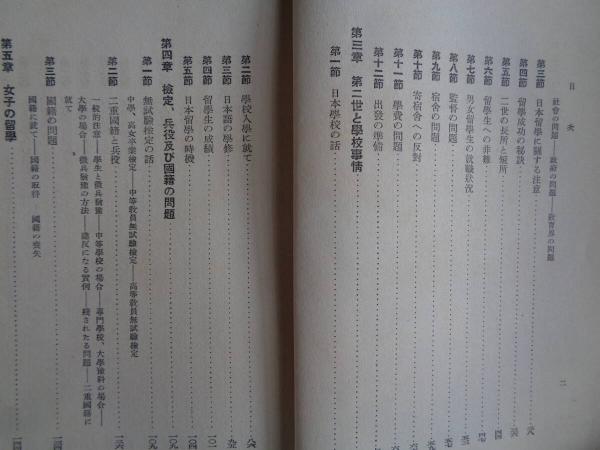 目次
二
社會の問題――政治の問題――教育界の問題
第三節 日本留學に關する注意
第四節 留學成功の秘訣
第五節 二世の長所と短所
第六節 留學生への非難
第七節 男女留學生の就職狀況
第八節 監督の問題
第九節 宿舍の問題
第十節 寄宿舍への反對
第十一節 學費の問題
第十二節 出發の準備
第三章 第二世と學校事情
第一節 日本學校の話
第二節 學校入學に就て
第三節 日本語の學修
第四節 留學生の成績
第五節 日本留學の時機
第四章 檢定、兵役及び國籍の問題
第一節 無試驗檢定の話
中學、高女卒業檢定――中等敎員無試驗檢定――高等敎員無試驗檢定
第二節 二重國籍と兵役
一般的注意――學生と徵兵猶豫――中等學校の場合――專門學校、大學豫科の場合――
大學の場合――徵兵猶豫の方法――違反になる實例――殘されたる問題――二重國籍に
就て
第三節 國籍の問題
國籍に就て――國籍の取得――國籍の喪失
第五章 女子の留學